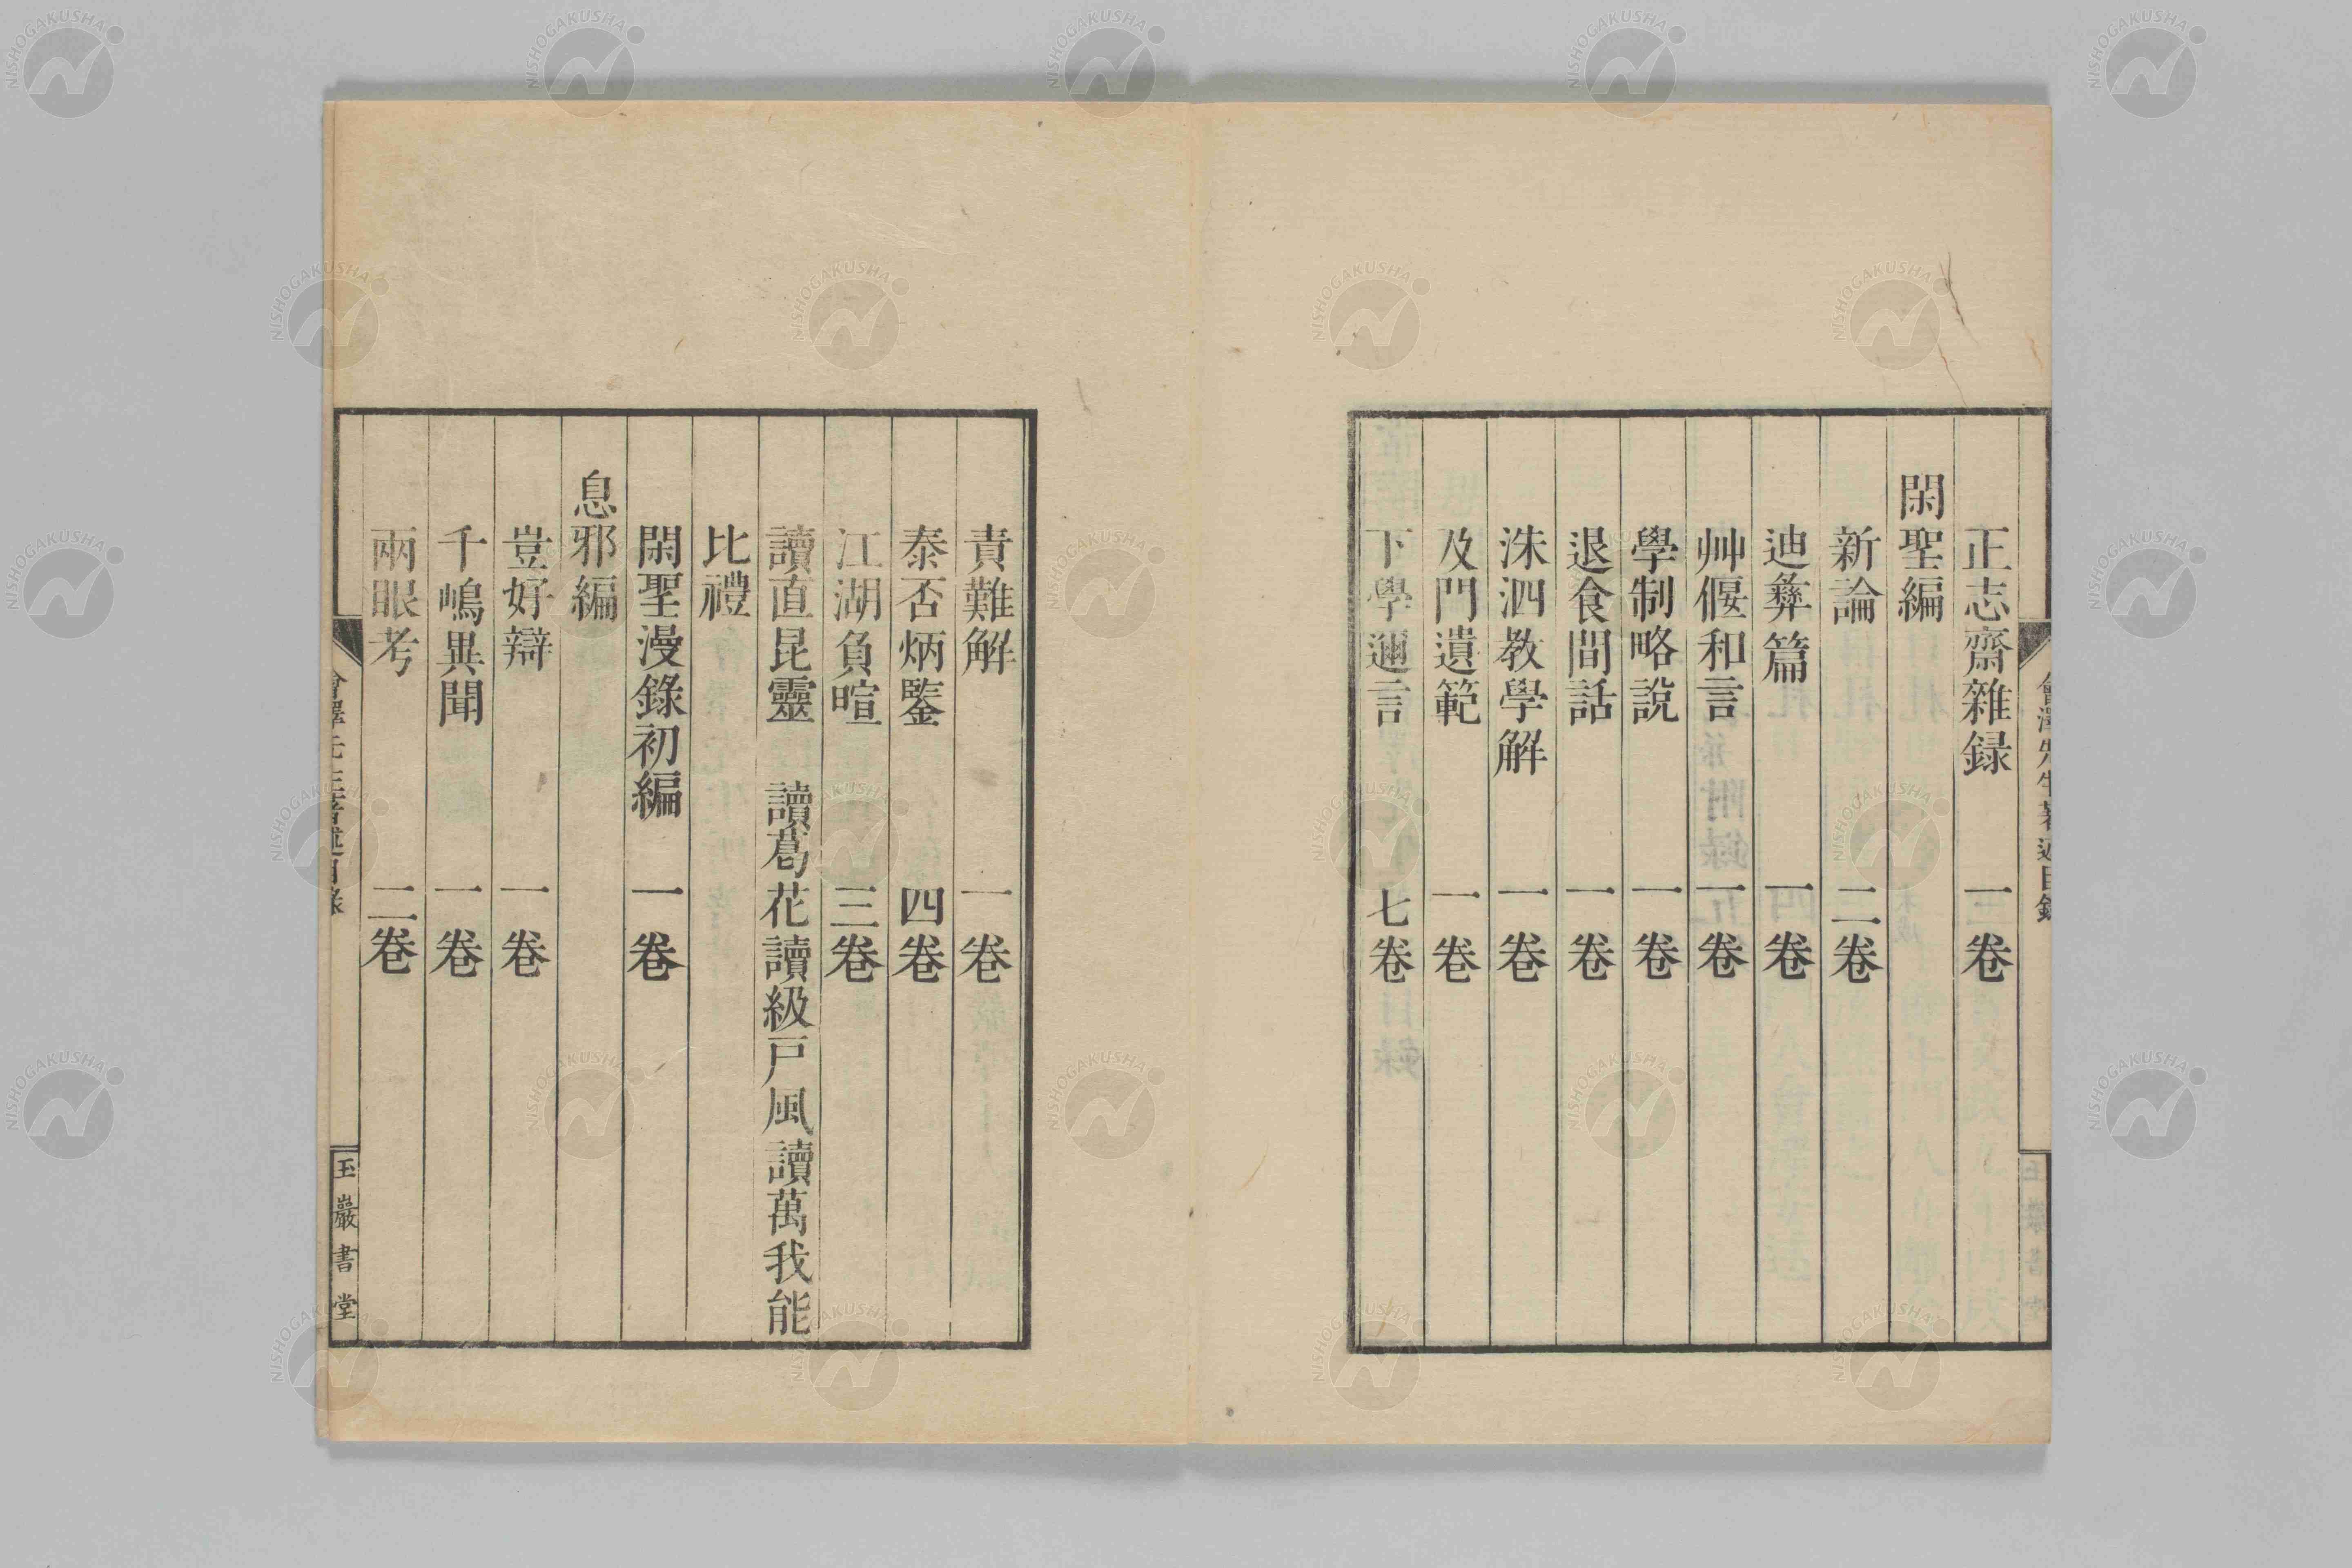 正志齋雜録 一卷
閑聖編
新論 二卷
迪彝篇 一卷
艸偃和言 一卷
學制略説 一卷
退食間話 一卷
洙泗教學解 一卷
及門遺範 一卷
下學邇言 七卷
責難解 一卷
泰否炳鑒 四卷
江湖負暄 三卷
讀直昆靈 讀葛花 讀級戸風 讀萬我能
比禮
閑聖漫錄初編 一卷
息邪編
豈好辯 一卷
千嶋異聞 一卷
兩眼考 二卷
會澤先生著述目錄
玉巖書堂
NISHOGAKUSHA